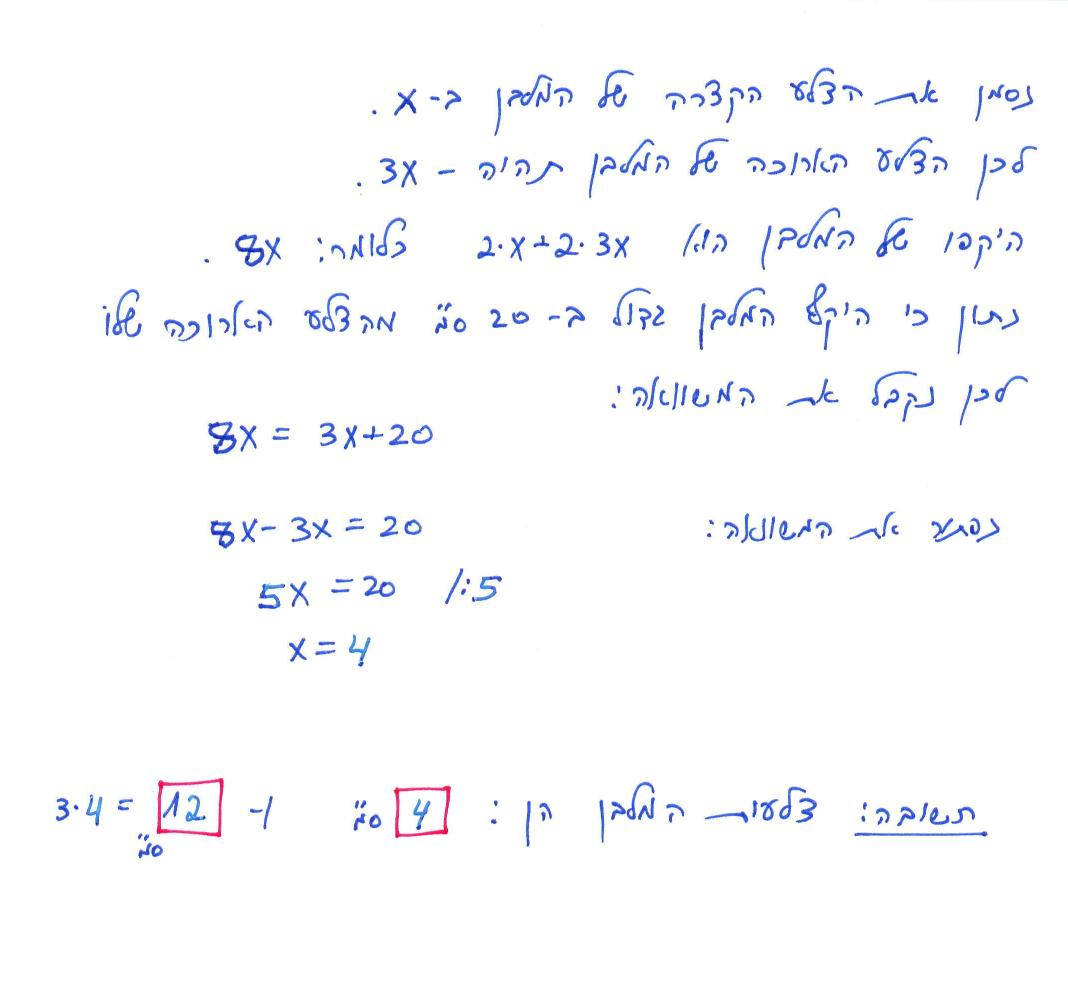 נסמן את הצלע הקצרה של המלבן ב- x .
לכן הצלע הארוכה של המלבן תהיה - 3x .
היקפו של המלבן הוא 2·x+2·3x כלומר: 8x .
נתון כי היקף המלבן גדול ב- 20 ס"מ מהצלע הארוכה שלו
לכן נקבל את המשוואה:
8x = 3x+20
נפתור את המשוואה: 8x- 3x = 20
5x = 20 /:5
x = 4
תשובה: צלעות המלבן הן : 4 ס"מ ו- 3·4 = 12 ס"מ